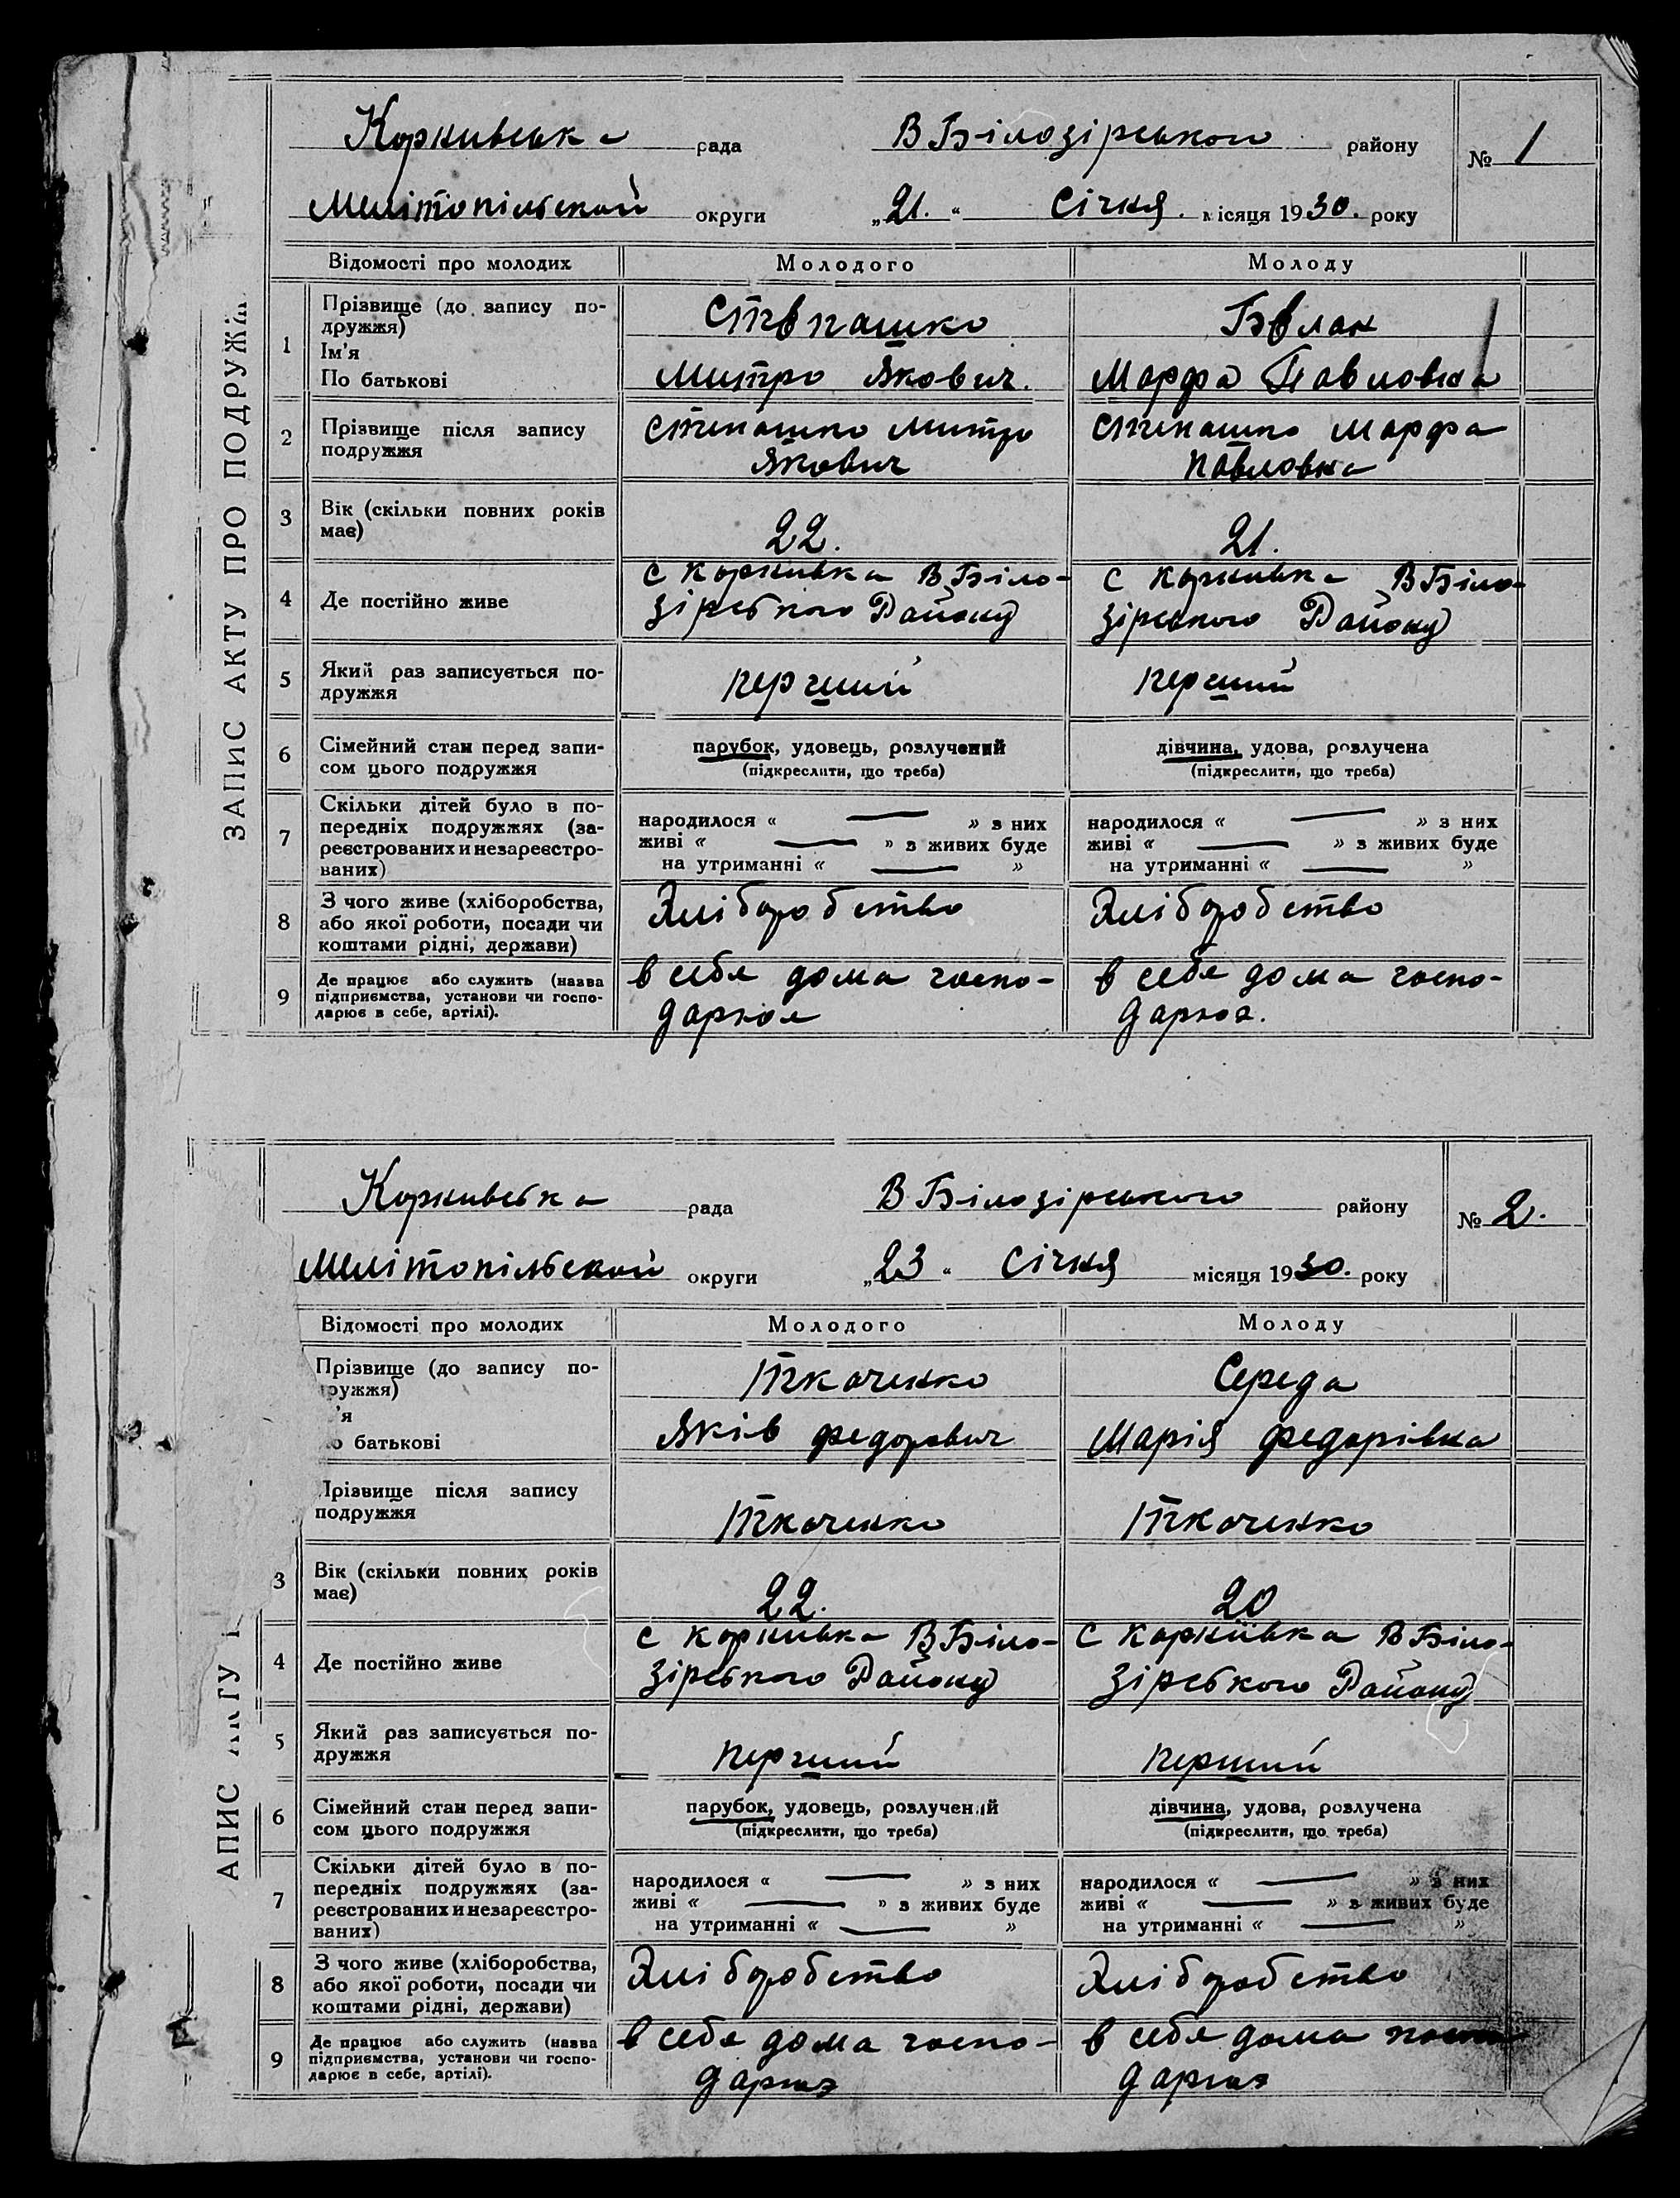 ЗАПИС АКТУ ПРО ПОДРУЖ
Корнивська рада В Білозірського району № 1
Мелітопільской округи „21.“ Січня. місяця 1930. року
Відомості про молодих Молодого Молоду
1 Прізвище (до запису по-
дружжя)
Ім'я
По батькові
Ствпашко
Митро Якович.
Бвлан
Марфа Павловна
2 Прізвище після запису
подружжя
Степашко Митро
Якович
Степашко Марфа
Павловна
3 Вік (скільки повних років
має)
22.
21.
4 Де постійно живе
с Корнивка В Біло-
зірського Району
с Корнивка В Біло-
зірського Району
5 Який раз записується по-
дружжя
перший
перший
6 Сімейний стан перед запи-
сом цього подружжя
парубок, удовець, розлучений
(підкреслити, що треба)
дівчина, удова, розлучена
(підкреслити, що треба)
7 Скільки дітей було в по-
передніх подружжях (за-
реєстрованих и незареєстро-
ваних)
народилося « — » з них
живі « — » з живих буде
на утриманні « — »
народилося « — » з них
живі « — » з живих буде
на утриманні « — »
8 З чого живе (хліборобства,
або якої роботи, посади чи
коштами рідні, держави)
Хліборобство
Хліборобство
9 Де працює або служить (назва
підприємства, установи чи госпо-
дарює в себе, артілі).
в себе дома госпо-
дарює
в себе дома госпо-
дарює.
АПИС АКТУ
Корнивська рада В Білозірського району № 2.
Мелітопільской округи „23“ Січня місяця 1930. року
Відомості про молодих Молодого Молоду
Прізвище (до запису по-
дружжя)
'я
о батькові
Ткаченко
Яків Федорович
Середа
Марія Федорівна
Прізвище після запису
подружжя
Ткаченко
Ткаченко
3 Вік (скільки повних років
має)
22.
20
4 Де постійно живе
с Корнивка В Біло-
зірського Району
с Корнивка В Біло-
зірського Району
5 Який раз записується по-
дружжя
перший
перший
6 Сімейний стан перед запи-
сом цього подружжя
парубок, удовець, розлучений
(підкреслити, що треба)
дівчина, удова, розлучена
(підкреслити, що треба)
7 Скільки дітей було в по-
передніх подружжях (за-
реєстрованих и незареєстро-
ваних)
народилося « — » з них
живі « — » з живих буде
на утриманні « — »
народилося « — » з них
живі « — » з живих буде
на утриманні « — »
8 З чого живе (хліборобства,
або якої роботи, посади чи
коштами рідні, держави)
Хліборобство
Хліборобство
9 Де працює або служить (назва
підприємства, установи чи госпо-
дарює в себе, артілі).
в себе дома госпо-
дарює
в себе дома
дарює